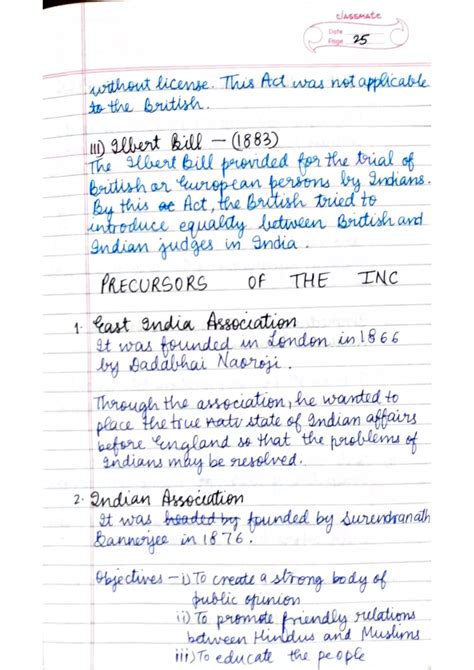 classmate
Date
Page 25
without license. This Act was not applicable
to the British.
iii) Ilbert Bill – (1883)
The Ilbert Bill provided for the trial of
British or European persons by Indians.
By this ac Act, the British tried to
introduce equality between British and
Indian judges in India.
PRECURSORS OF THE INC
1. East India Association
It was founded in London in 1866
by Dadabhai Naoroji.
Through the association, he wanted to
place the true natu state of Indian affairs
before England so that the problems of
Indians may be resolved.
2. Indian Association
It was headed by founded by Surendranath
Bannerjee in 1876.
Objectives – i) To create a strong body of
public opunion
ii) To promote friendly relations
between Hindus and Muslims
iii) To educate the people